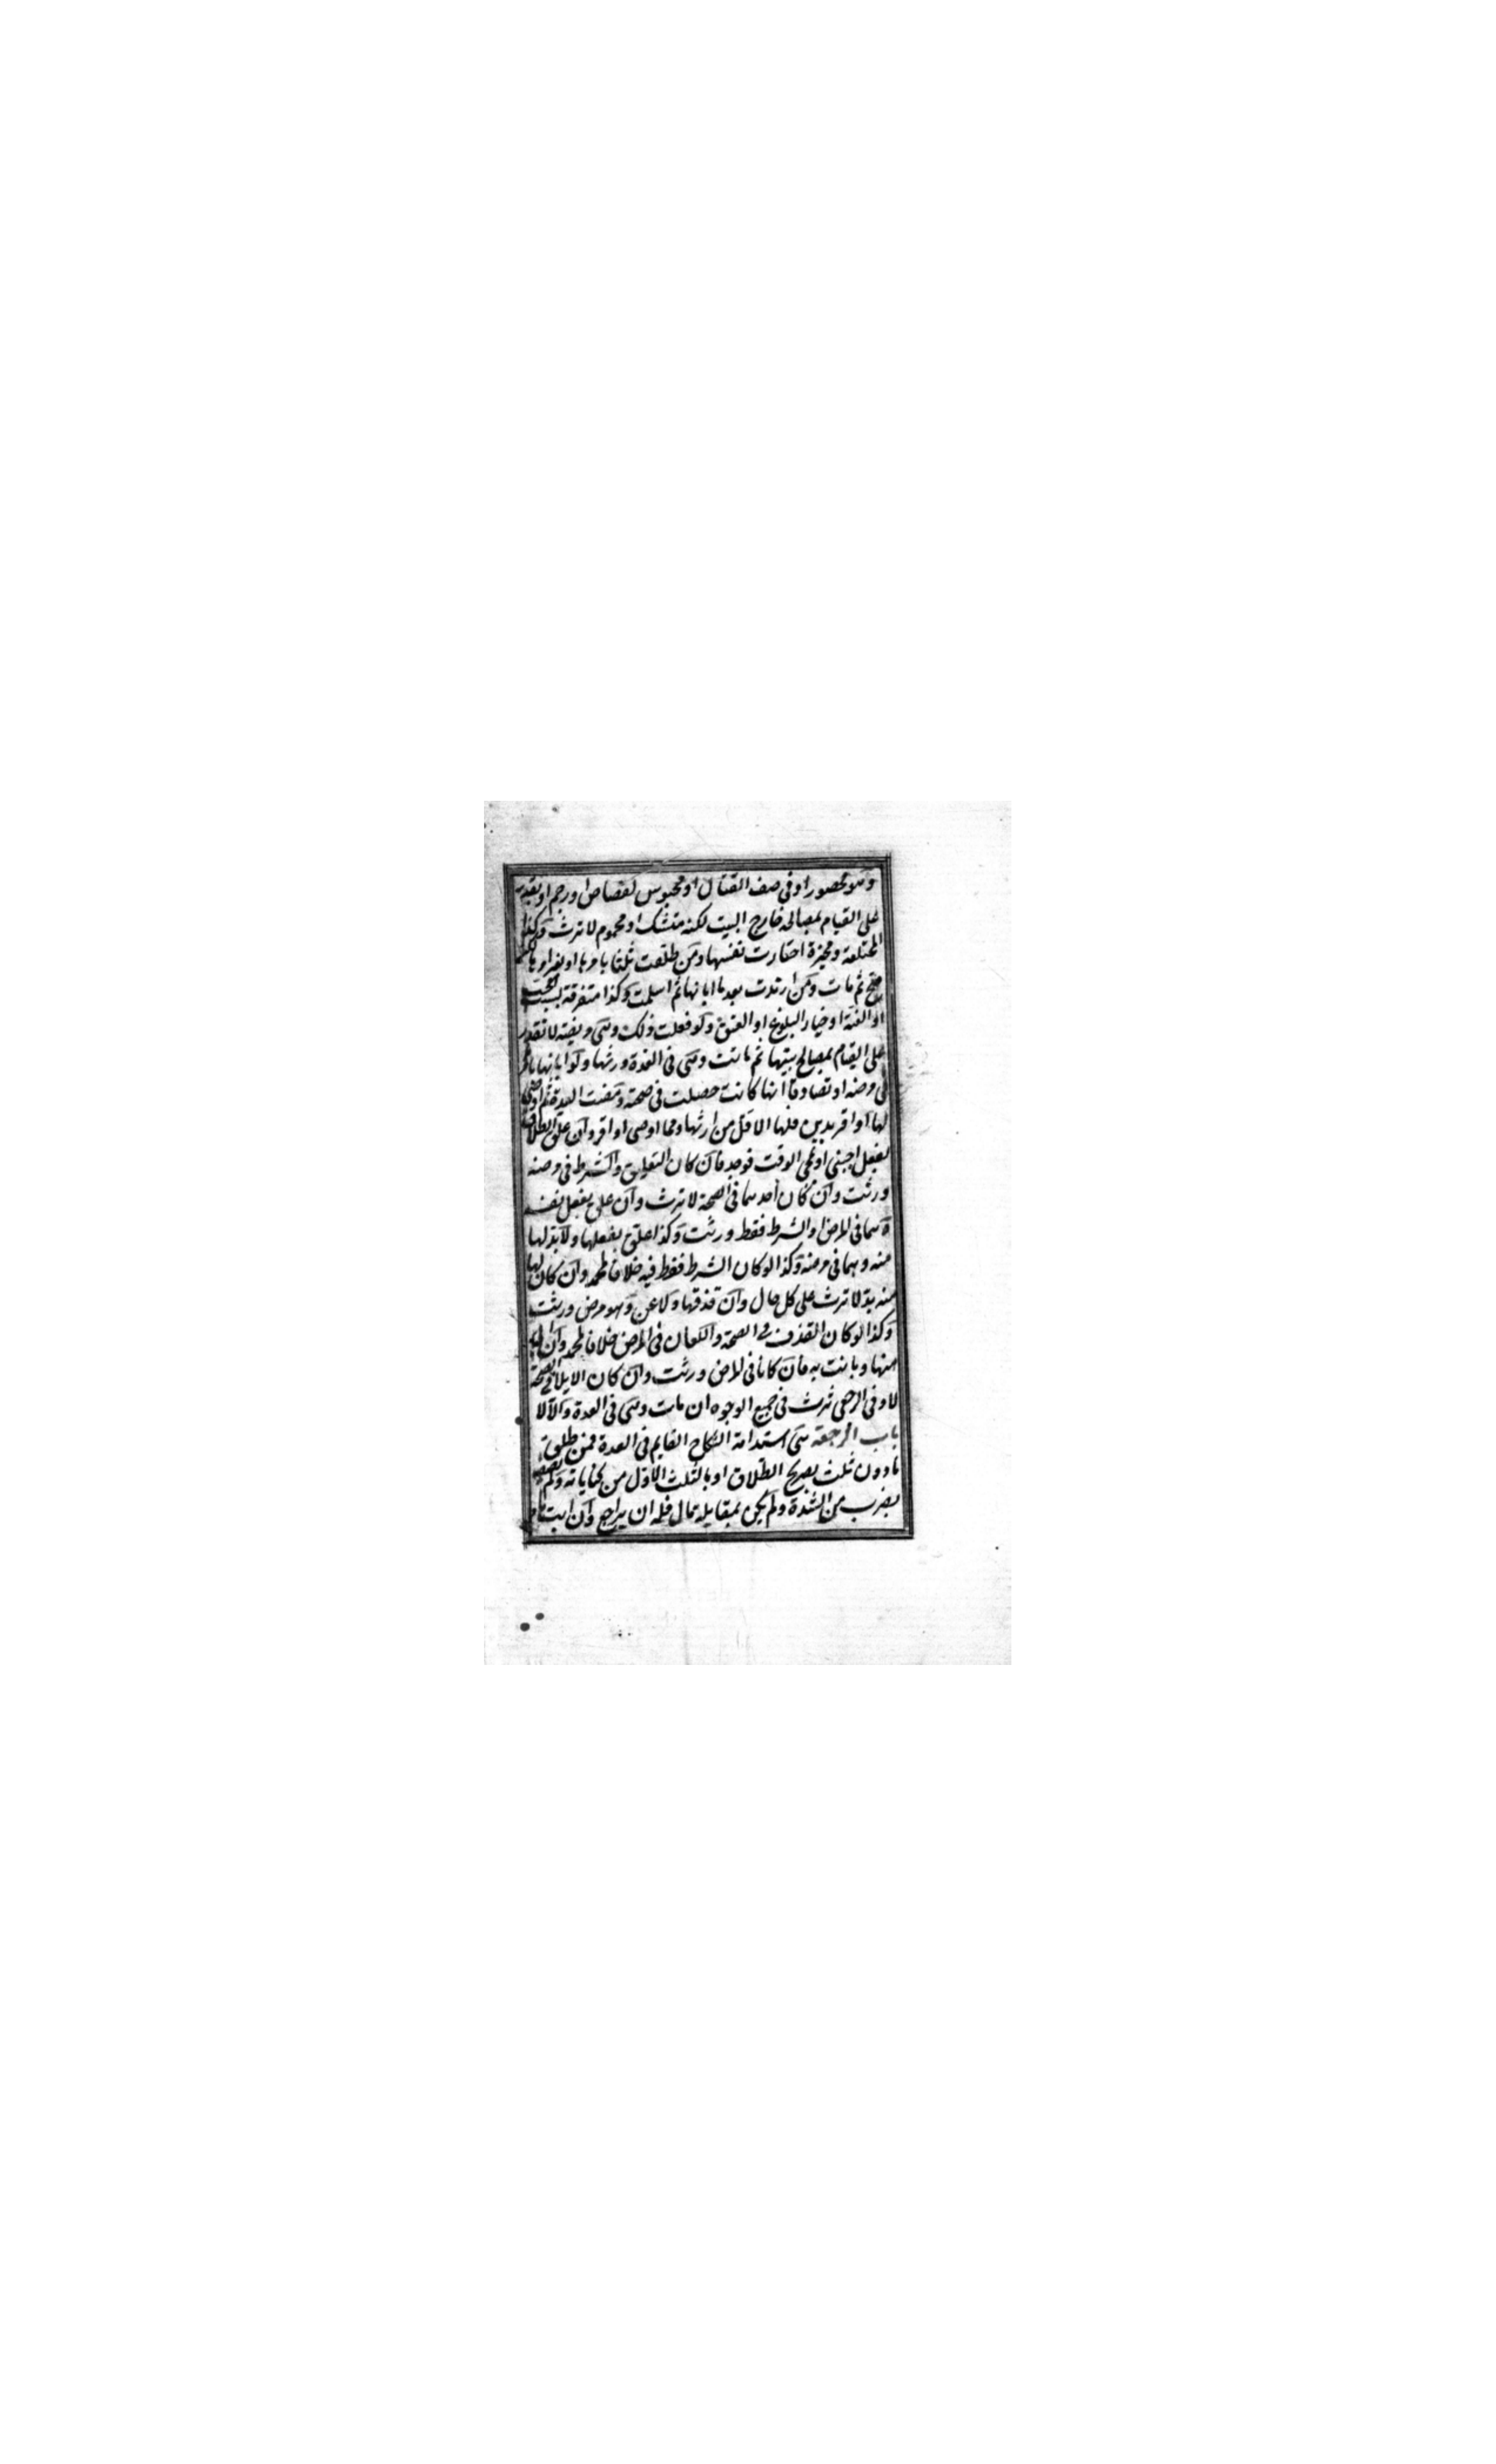 وهو محصور او في صف القتال او محبوس لقصاص او رجم او يقدر
على القيام بمصالحه خارج البيت لكنه متشك او محموم لا ترث وكذا
المختلعة ومخيرة اختارت نفسها ومن طلقت ثلثا بامرها او بغير امرها لكنه
صح ثم مات ومن ارتدت بعد ما ابانها ثم اسلمت وكذا مفرقة بسبب الجب
او العنة او خيار البلوغ او العتق ولو فعلت ذلك وهي مريضة لا تقدر
على القيام بمصالح بيتها ثم ماتت وهي في العدة ورثها ولو ابانها بامرها
في مرضه او تصادقا انها كانت حصلت في صحته ومضت العدة ثم اوصى
لها او اقر بدين فلها الاقل من ارثها ومما اوصى او اقر وان علق الطلاق
بفعل اجنبي او بمجي الوقت فوجد فان كان التعليق والشرط في مرضه
ورثت وان كان احدهما في الصحة لا ترث وان علق بفعل نفسه
وهما في المرض او الشرط فقط ورثت وكذا علق بفعلها ولا بد لها
منه وهما في مرضه وكذا لو كان الشرط فقط فيه خلافا لمحمد وان كان لها
منه بد لا ترث على كل حال وان قذفها ولاعن وهو مريض ورثت
وكذا لو كان القذف في الصحة واللعان في المرض خلافا لمحمد وان الى
منها وبانت به فان كانا في المرض ورثت وان كان الايلاء في الصحة
لا وفي الرجعي ترث في جميع الوجوه ان مات وهي في العدة والا لا
باب الرجعة هي استدامة النكاح القايم في العدة فمن طلق
ما دون ثلث بصريح الطلاق او بالثلث الاول من كناياته ولم يصفه
بضرب من الشدة ولم يكن بمقابلة مال فله ان يراجع وان ابت ما